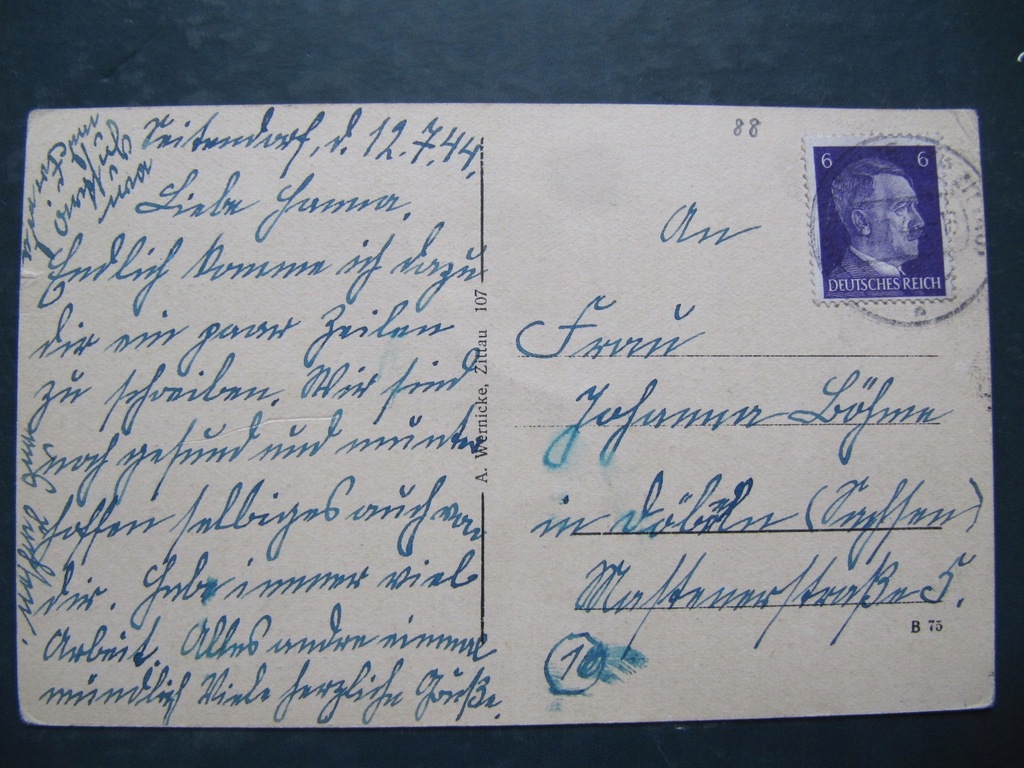 Seitendorf, d. 12.7.44.
Liebe Hanna.
Endlich komme ich dazu
dir ein paar Zeilen
zu schreiben. Wir sind
noch gesund und munter
hoffen selbiges auch von
dir. Habe immer viel
Arbeit. Alles andre einmal
mündlich Viele herzliche Grüße
A. Wernicke, Zittau 107
88
6 6
DEUTSCHES REICH
An
Frau
Johanna Böhme
in Döbeln (Sachsen)
Mastenerstraße 5.
B 75
10